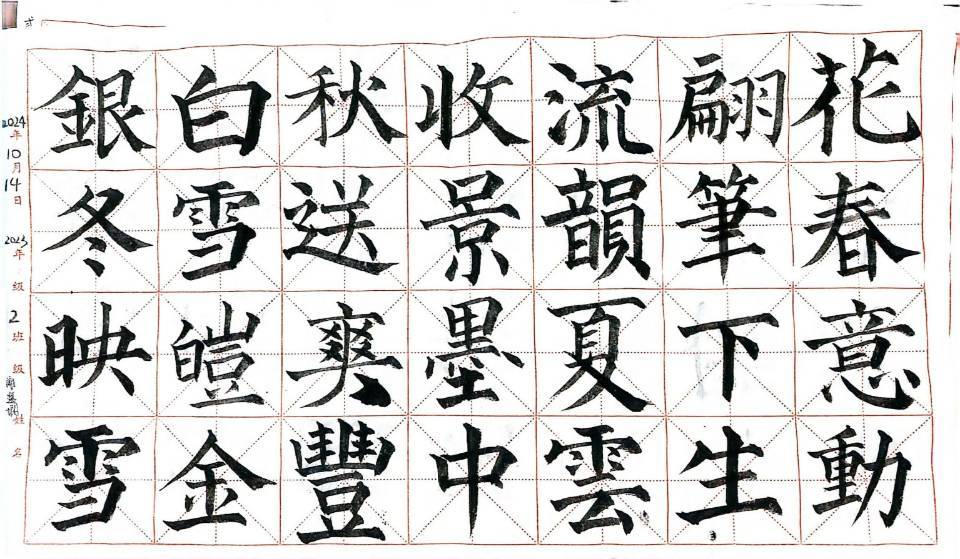 花春意動
翩筆下生
流韻夏雲
收景墨中
秋送爽豐
白雪皚金
銀冬映雪
2024年10月14日 2023年級2班級 姓名